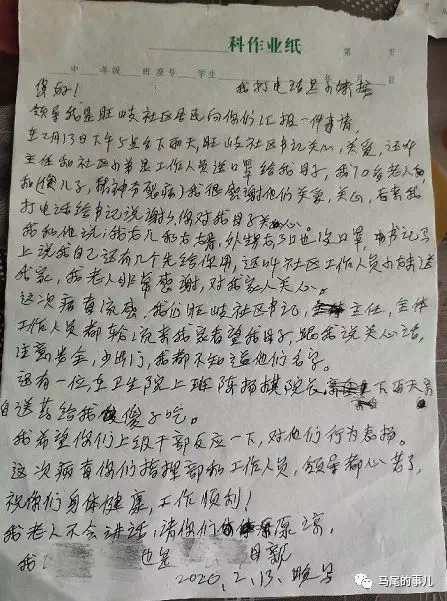 科作业纸
中 年级 班 座号 学生 年 月 日 第 页
您好! 我打电话是
领导我是旺岐社区居民向你们汇报一件事情,
在2月13日下午5点台下雨天,旺岐社区书记关心,关爱,还叫
主任和社区工作人员送口罩给我母子,我70多老人
和傻儿子,我很感谢他们关爱,关心,后来我
打电话给书记说谢谢你对我母子关心。
我和他说:我女儿和女婿,外甥女3口也没口罩,书记马
上说我自己还有几个先给你用,还叫社区工作人员送
我家,我老人非常感谢,对我家人关心。
这次病毒流感,我们旺岐社区书记,主任,全体
工作人员都轮流来我家看望我母子,跟我说关心话,
注意安全,少出门,我都不知道他们名字。
还有一位,在卫生院上班陈扬模院长,下雨天亲
自送药给我傻子吃。
我希望你们上级干部反应一下,对他们行为表扬。
这次病毒你们指挥部和工作人员,领导都心苦了,
祝你们身体健康,工作顺利!
我老人不会讲话,请你们原谅,
我 也是 母亲
2020,2,13,晚写
马尾的事儿